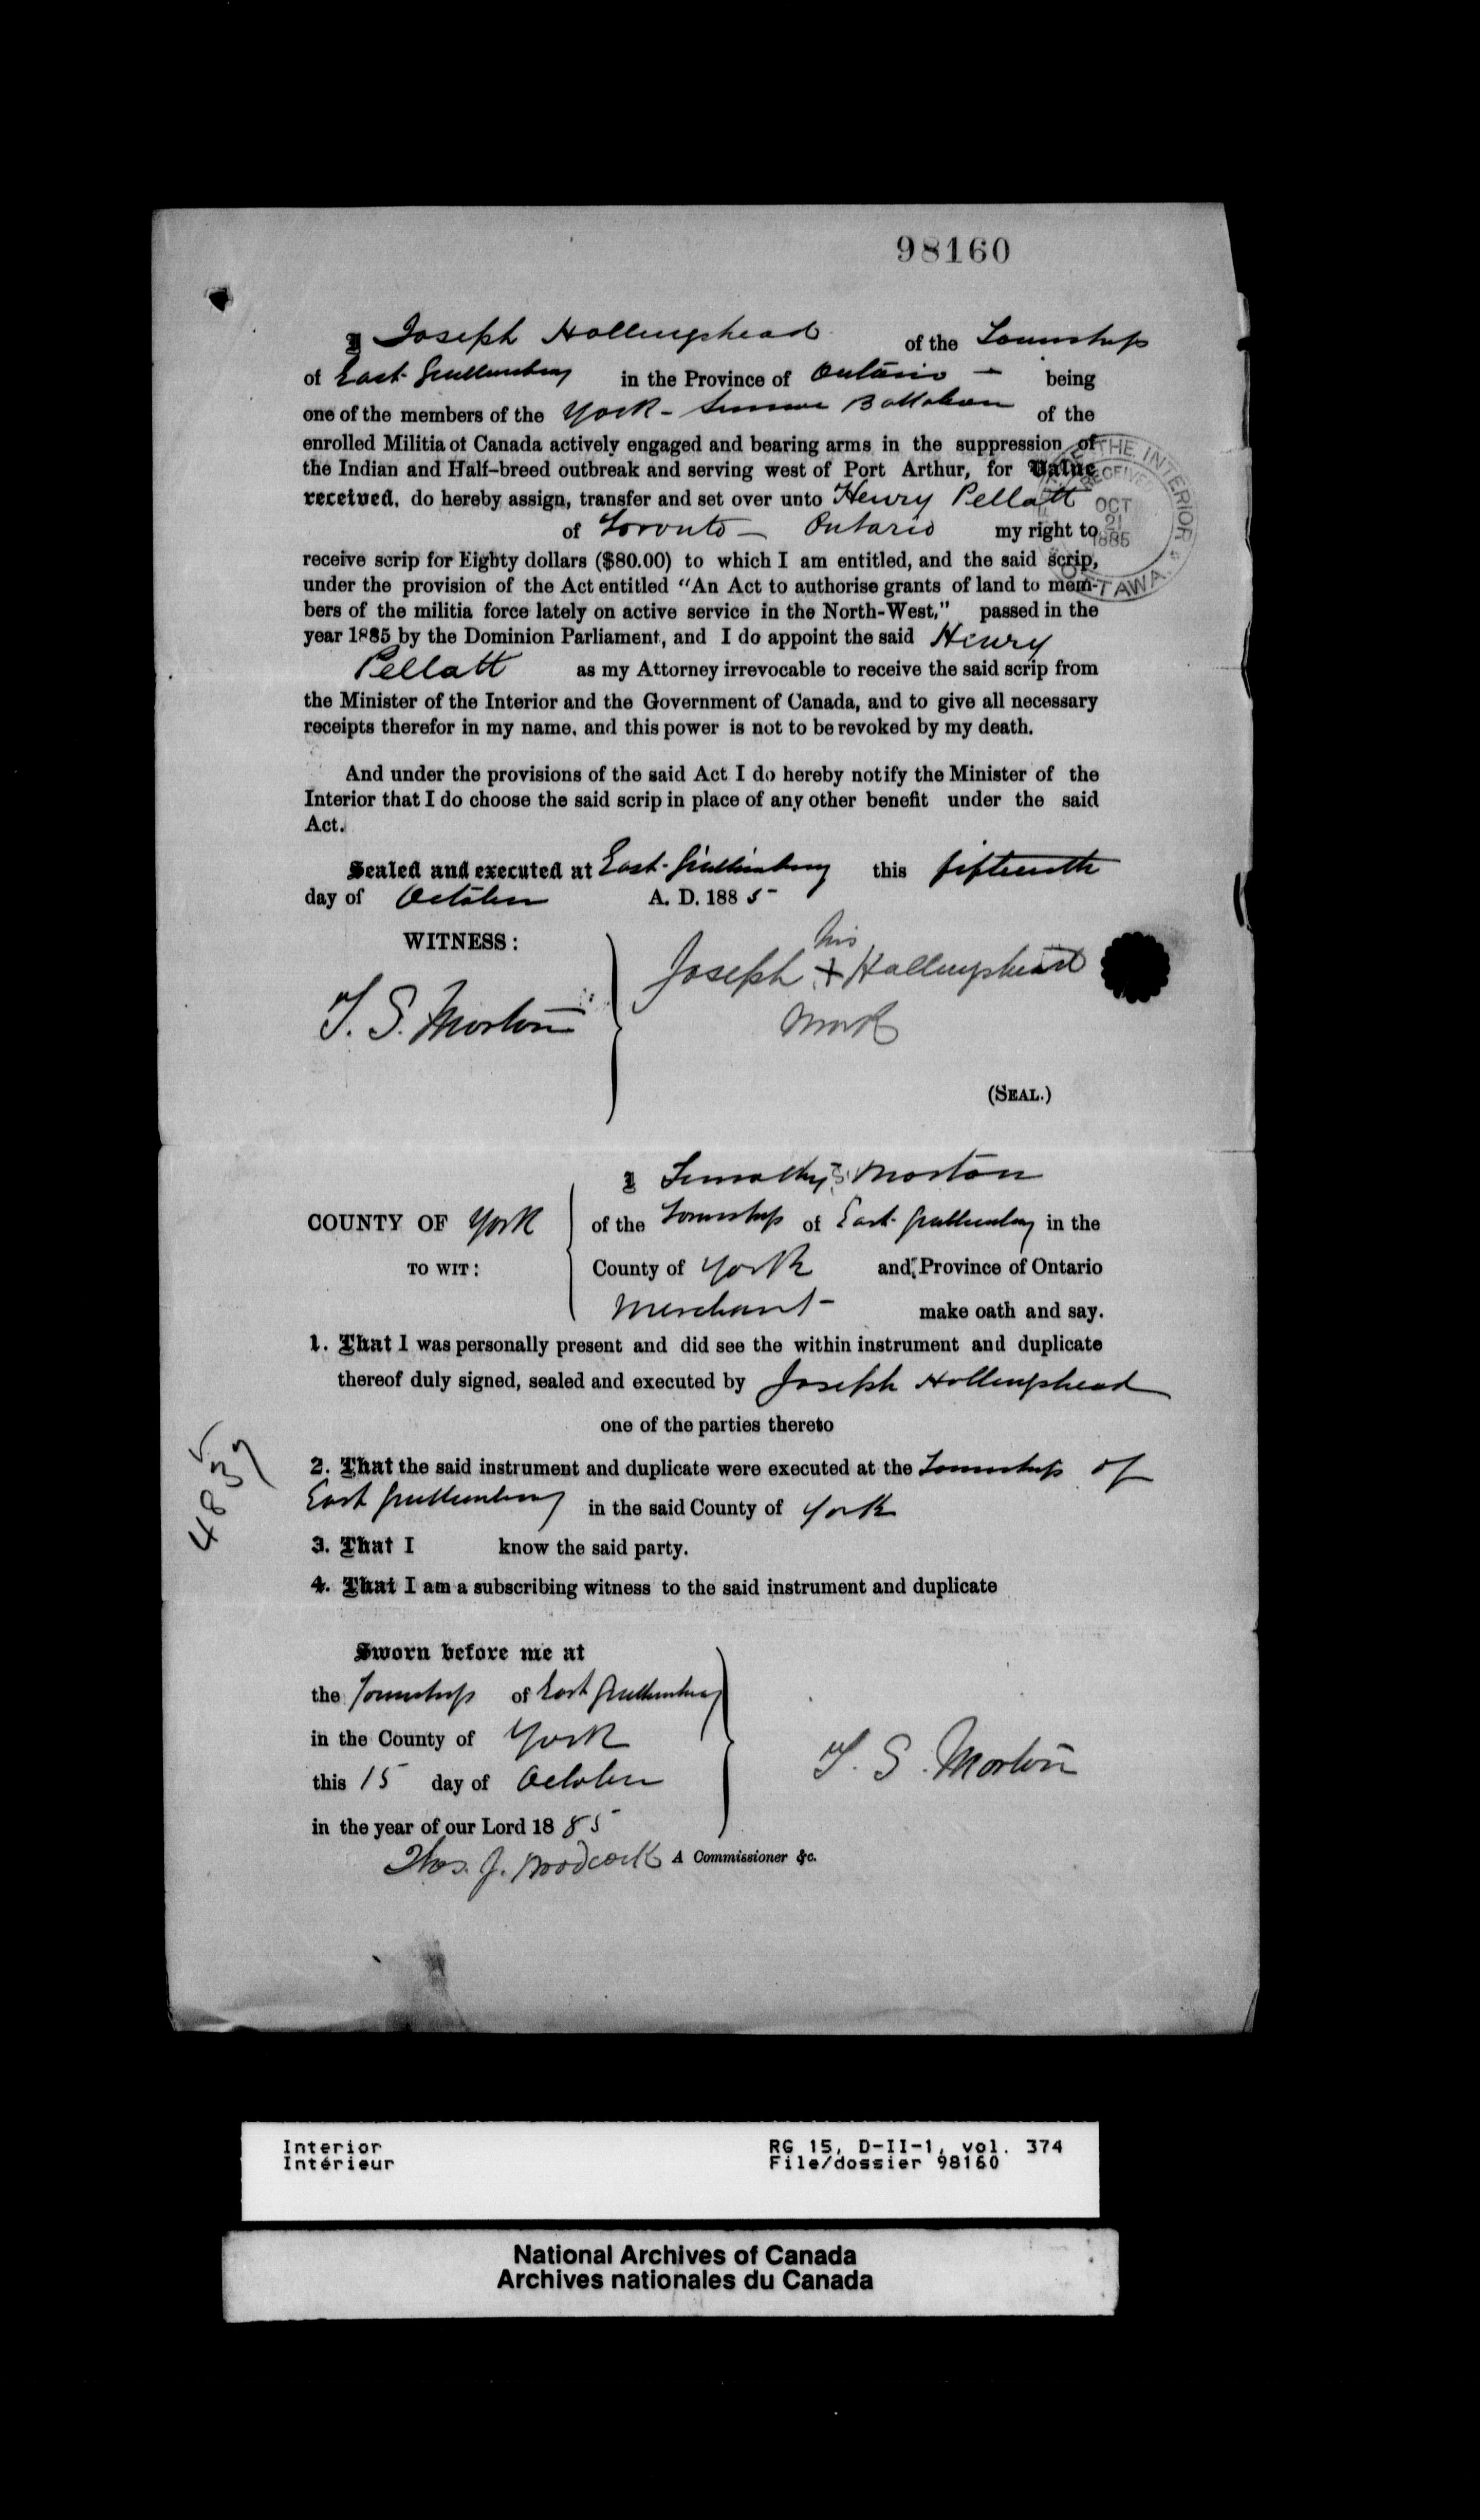 98160
I Joseph Hollingshead of the Township
of East Gwillimbury in the Province of Ontario — being
one of the members of the York - Simcoe Battalion of the
enrolled Militia of Canada actively engaged and bearing arms in the suppression of
the Indian and Half-breed outbreak and serving west of Port Arthur, for Value
received, do hereby assign, transfer and set over unto Henry Pellatt
of Toronto — Ontario my right to
receive scrip for Eighty dollars ($80.00) to which I am entitled, and the said scrip,
under the provision of the Act entitled "An Act to authorise grants of land to mem-
bers of the militia force lately on active service in the North-West," passed in the
year 1885 by the Dominion Parliament, and I do appoint the said Henry
Pellatt as my Attorney irrevocable to receive the said scrip from
the Minister of the Interior and the Government of Canada, and to give all necessary
receipts therefor in my name, and this power is not to be revoked by my death.
THE INTERIOR
RECEIVED
OCT
21
1885
OTTAWA
And under the provisions of the said Act I do hereby notify the Minister of the
Interior that I do choose the said scrip in place of any other benefit under the said
Act.
Sealed and executed at East Gwillimbury this fifteenth
day of October A. D. 1885
WITNESS:
his
Joseph + Hollingshead
mark
T. S. Morton
(SEAL.)
I Timothy S Morton
COUNTY OF York of the Township of East Gwillimbury in the
TO WIT: County of York and Province of Ontario
Merchant - make oath and say.
1. That I was personally present and did see the within instrument and duplicate
thereof duly signed, sealed and executed by Joseph Hollingshead
one of the parties thereto
2. That the said instrument and duplicate were executed at the Township of
East Gwillimbury in the said County of York
3. That I know the said party.
4. That I am a subscribing witness to the said instrument and duplicate
Sworn before me at
the Township of East Gwillimbury
in the County of York
this 15 day of October
T. S. Morton
in the year of our Lord 1885
Thos. J. Woodcock A Commissioner &c.
Interior
Intérieur
RG 15, D-II-1, vol. 374
File/dossier 98160
National Archives of Canada
Archives nationales du Canada